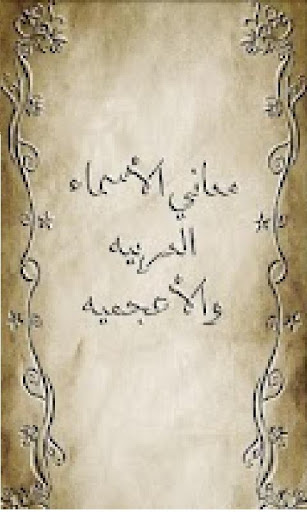 معاني الأسماء
العربيه
والأعجميه